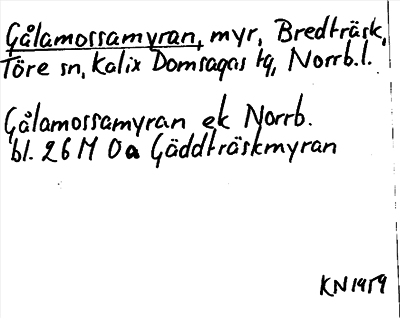 Gålamossamyran, myr, Bredträsk,
Töre sn, Kalix Domsagas tg, Norrb.l.
Gålamossamyran ek Norrb.
bl. 26 M 0a Gäddträskmyran
KN 1959